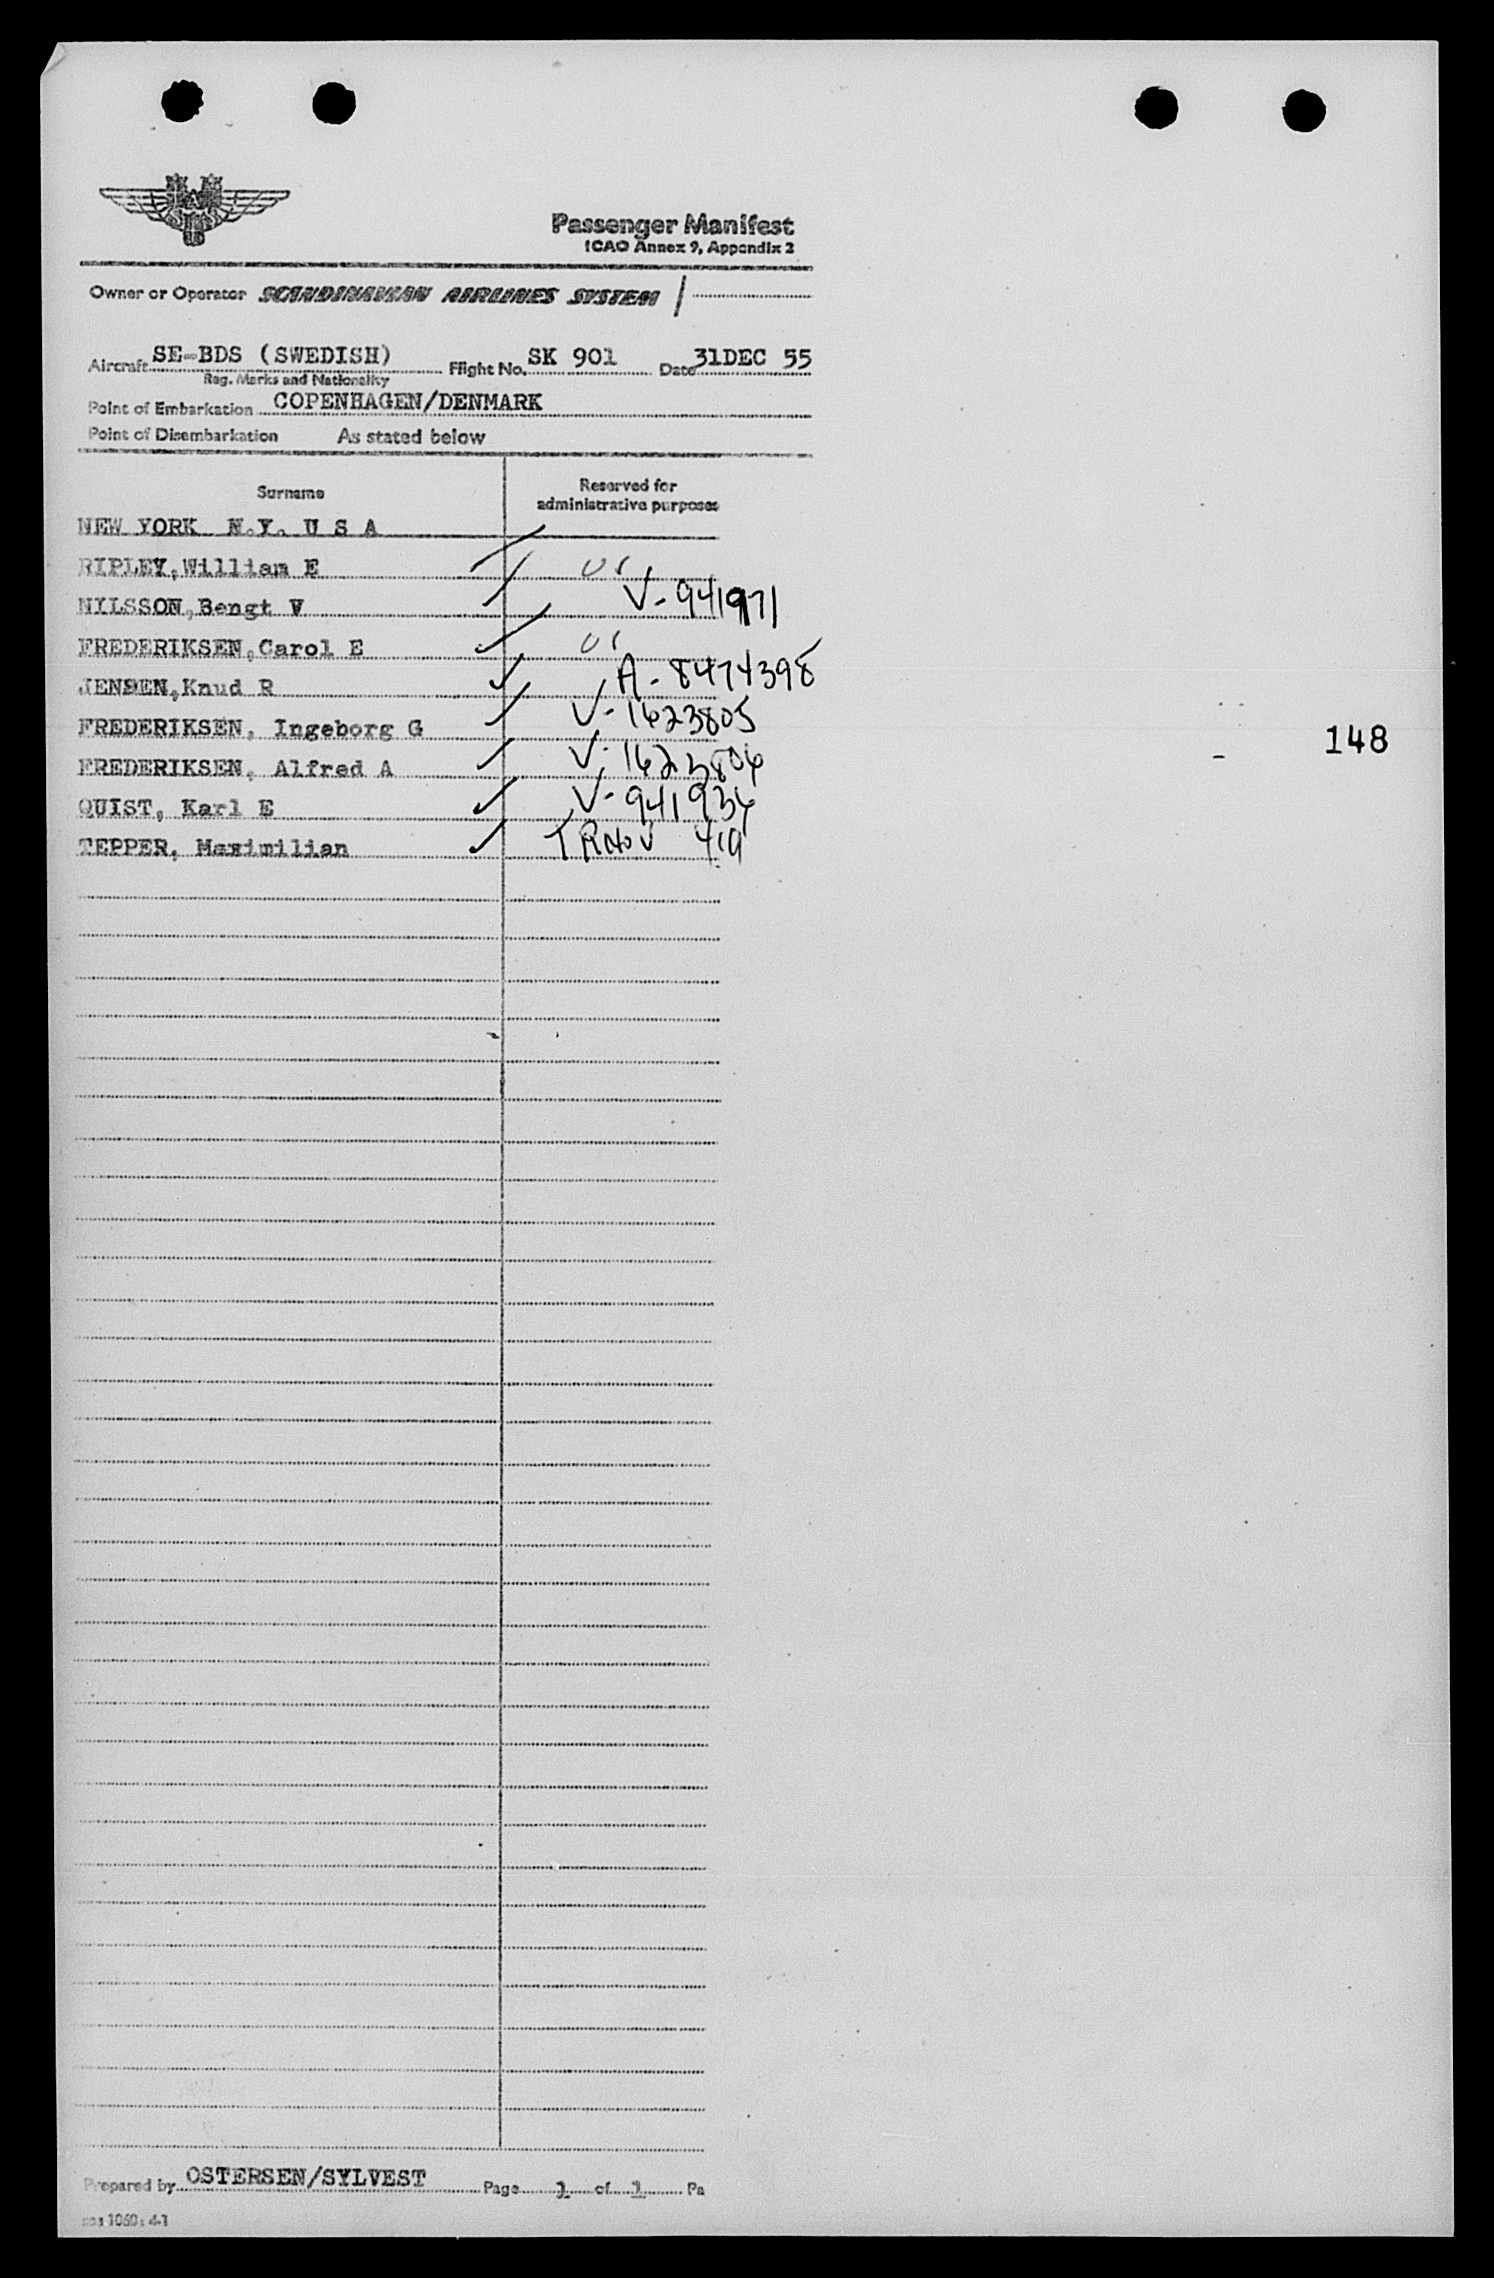 Passenger Manifest
ICAO Annex 9, Appendix 2
Owner or Operator SCANDINAVIAN AIRLINES SYSTEM
Aircraft SE-BDS (SWEDISH) Flight No. SK 901 Date 31DEC 55
Reg. Marks and Nationality
Point of Embarkation COPENHAGEN/DENMARK
Point of Disembarkation As stated below
Surname Reserved for administrative purposes
NEW YORK N.Y. U S A
RIPLEY,William E US
NILSSON,Bengt V V-941971
FREDERIKSEN,Carol E US
JENSEN,Knud R A-8474398
FREDERIKSEN, Ingeborg G V-1623805
FREDERIKSEN, Alfred A V-1623806
148
QUIST, Karl E V-941936
TEPPER, Maximilian 419
Prepared by OSTERSEN/SYLVEST Page 1 of 1 Pa
1060: 4-1